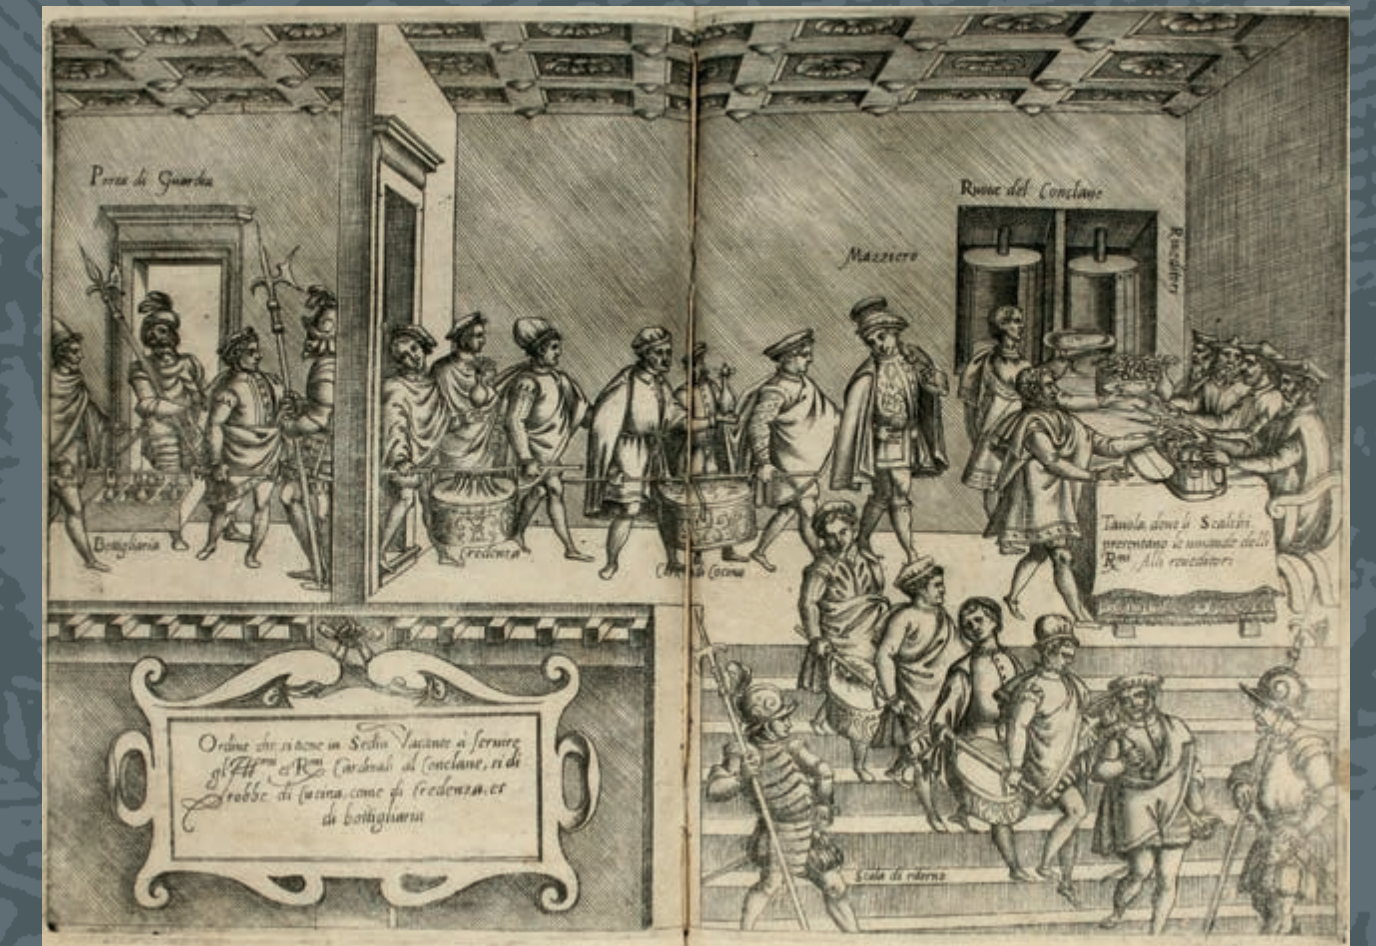 Porta di Guardia
Ruote del Conclave
Reveditori
Mazziero
Bottigliaria
Credenza
di Cocina
Tavola dove li Scalchi
presentano le vivande delli
R.mi Alli reveditori
Ordine che si tiene in Sedia Vacante à servire
gl'Ill.mi et R.mi Cardinali al Conclave, si di
robbe di Cucina, come di Credenza, et
di bottigliaria
Scala di ritorno